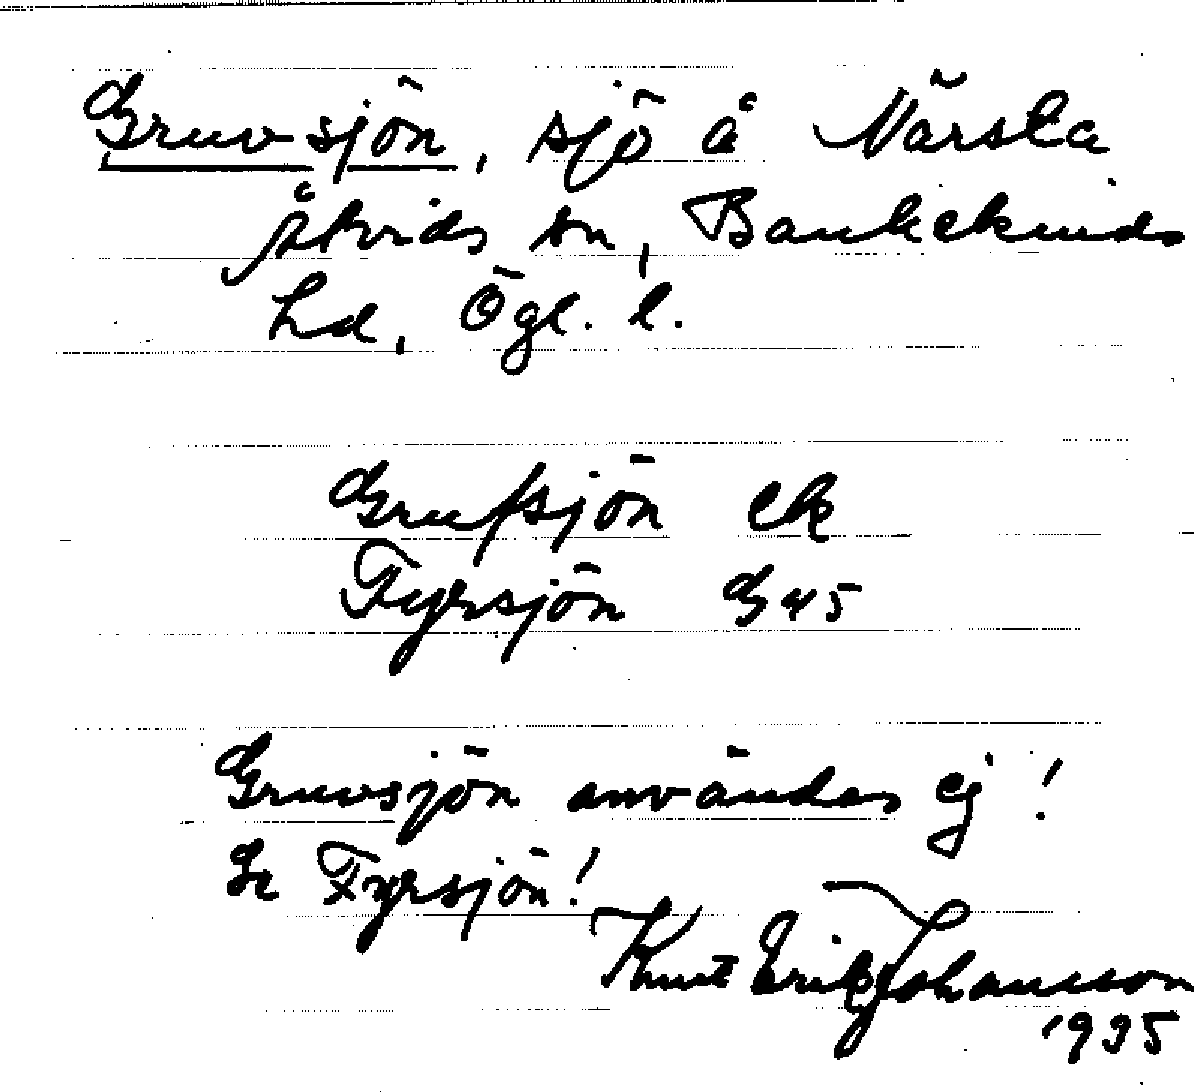 Gruvsjön, sjö å Närsta
åtvids sn, Bankekinds
hd, Ögl. l.
Grufsjön ek
Fyrsjön G 45
Gruvsjön användes ej!
Se Fyrsjön!
Knut Erik Johansson
1935